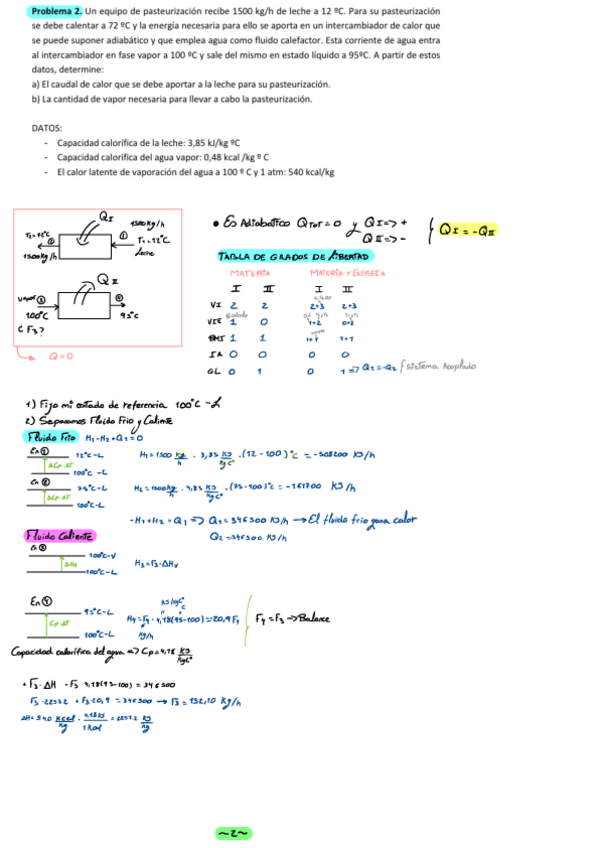 Problema 2. Un equipo de pasteurización recibe 1500 kg/h de leche a 12 ºC. Para su pasteurización
se debe calentar a 72 ºC y la energía necesaria para ello se aporta en un intercambiador de calor que
se puede suponer adiabático y que emplea agua como fluido calefactor. Esta corriente de agua entra
al intercambiador en fase vapor a 100 ºC y sale del mismo en estado líquido a 95ºC. A partir de estos
datos, determine:
a) El caudal de calor que se debe aportar a la leche para su pasteurización.
b) La cantidad de vapor necesaria para llevar a cabo la pasteurización.
DATOS:
- Capacidad calorífica de la leche: 3,85 kJ/kg ºC
- Capacidad calorífica del agua vapor: 0,48 kcal /kg º C
- El calor latente de vaporización del agua a 100 º C y 1 atm: 540 kcal/kg
QI
1500 kg/h
②
①
T1=12ºC
1500 kg/h
Leche
QII
vapor ③
④
100ºC
95ºC
¿F3?
Q=0
• Es Adiabático QTOT=0 y QI=> +
QII=> -
QI=-QII
TABLA DE GRADOS DE LIBERTAD
MATERIA MATERIA Y ENERGIA
I II I II
VI 2 2 2+3 2+3
VIE 1 0 1+2 0+2
1 1 1+1 1+1
IA 0 0 0 0
GL 0 1 0 1 => Q1=-Q2 Sistema Acoplado
1) Fijo mi estado de referencia 100ºC -L
2) Separamos Fluido Frio y Caliente
Fluido Frio H1-H2+Q1=0
En ①
12ºC-L
ΔCp·ΔT
100ºC-L
H1=1500 kg/h · 3,85 KJ/kgºC · (12-100)ºC = -508200 KJ/h
En ②
75ºC-L
ΔCp·ΔT
100ºC-L
H2=1500 kg/h · 3,85 KJ/kgºC · (72-100)ºC = -161700 KJ/h
-H1+H2=Q1 => Q1=346500 KJ/h → El fluido frio gana calor
Q2=-346500 KJ/h
Fluido Caliente
100ºC-V
ΔHv
100ºC-L
H3=F3·ΔHv
En ④
95ºC-L
Cp·ΔT
100ºC-L
KJ/kgºC
ºC
H4=F4·4,18(95-100)=-20,9 F4
kg/h
F4=F3 → Balance
Capacidad calorífica del agua => Cp=4,18 KJ/kgºC
+F3·ΔH -F3·4,18(95-100)=346500
F3·2257,2 +F3·20,9=346500 → F3=152,10 kg/h
ΔH=540 kcal/kg · 4,18KJ/1kcal = 2257,2 KJ/kg
~2~